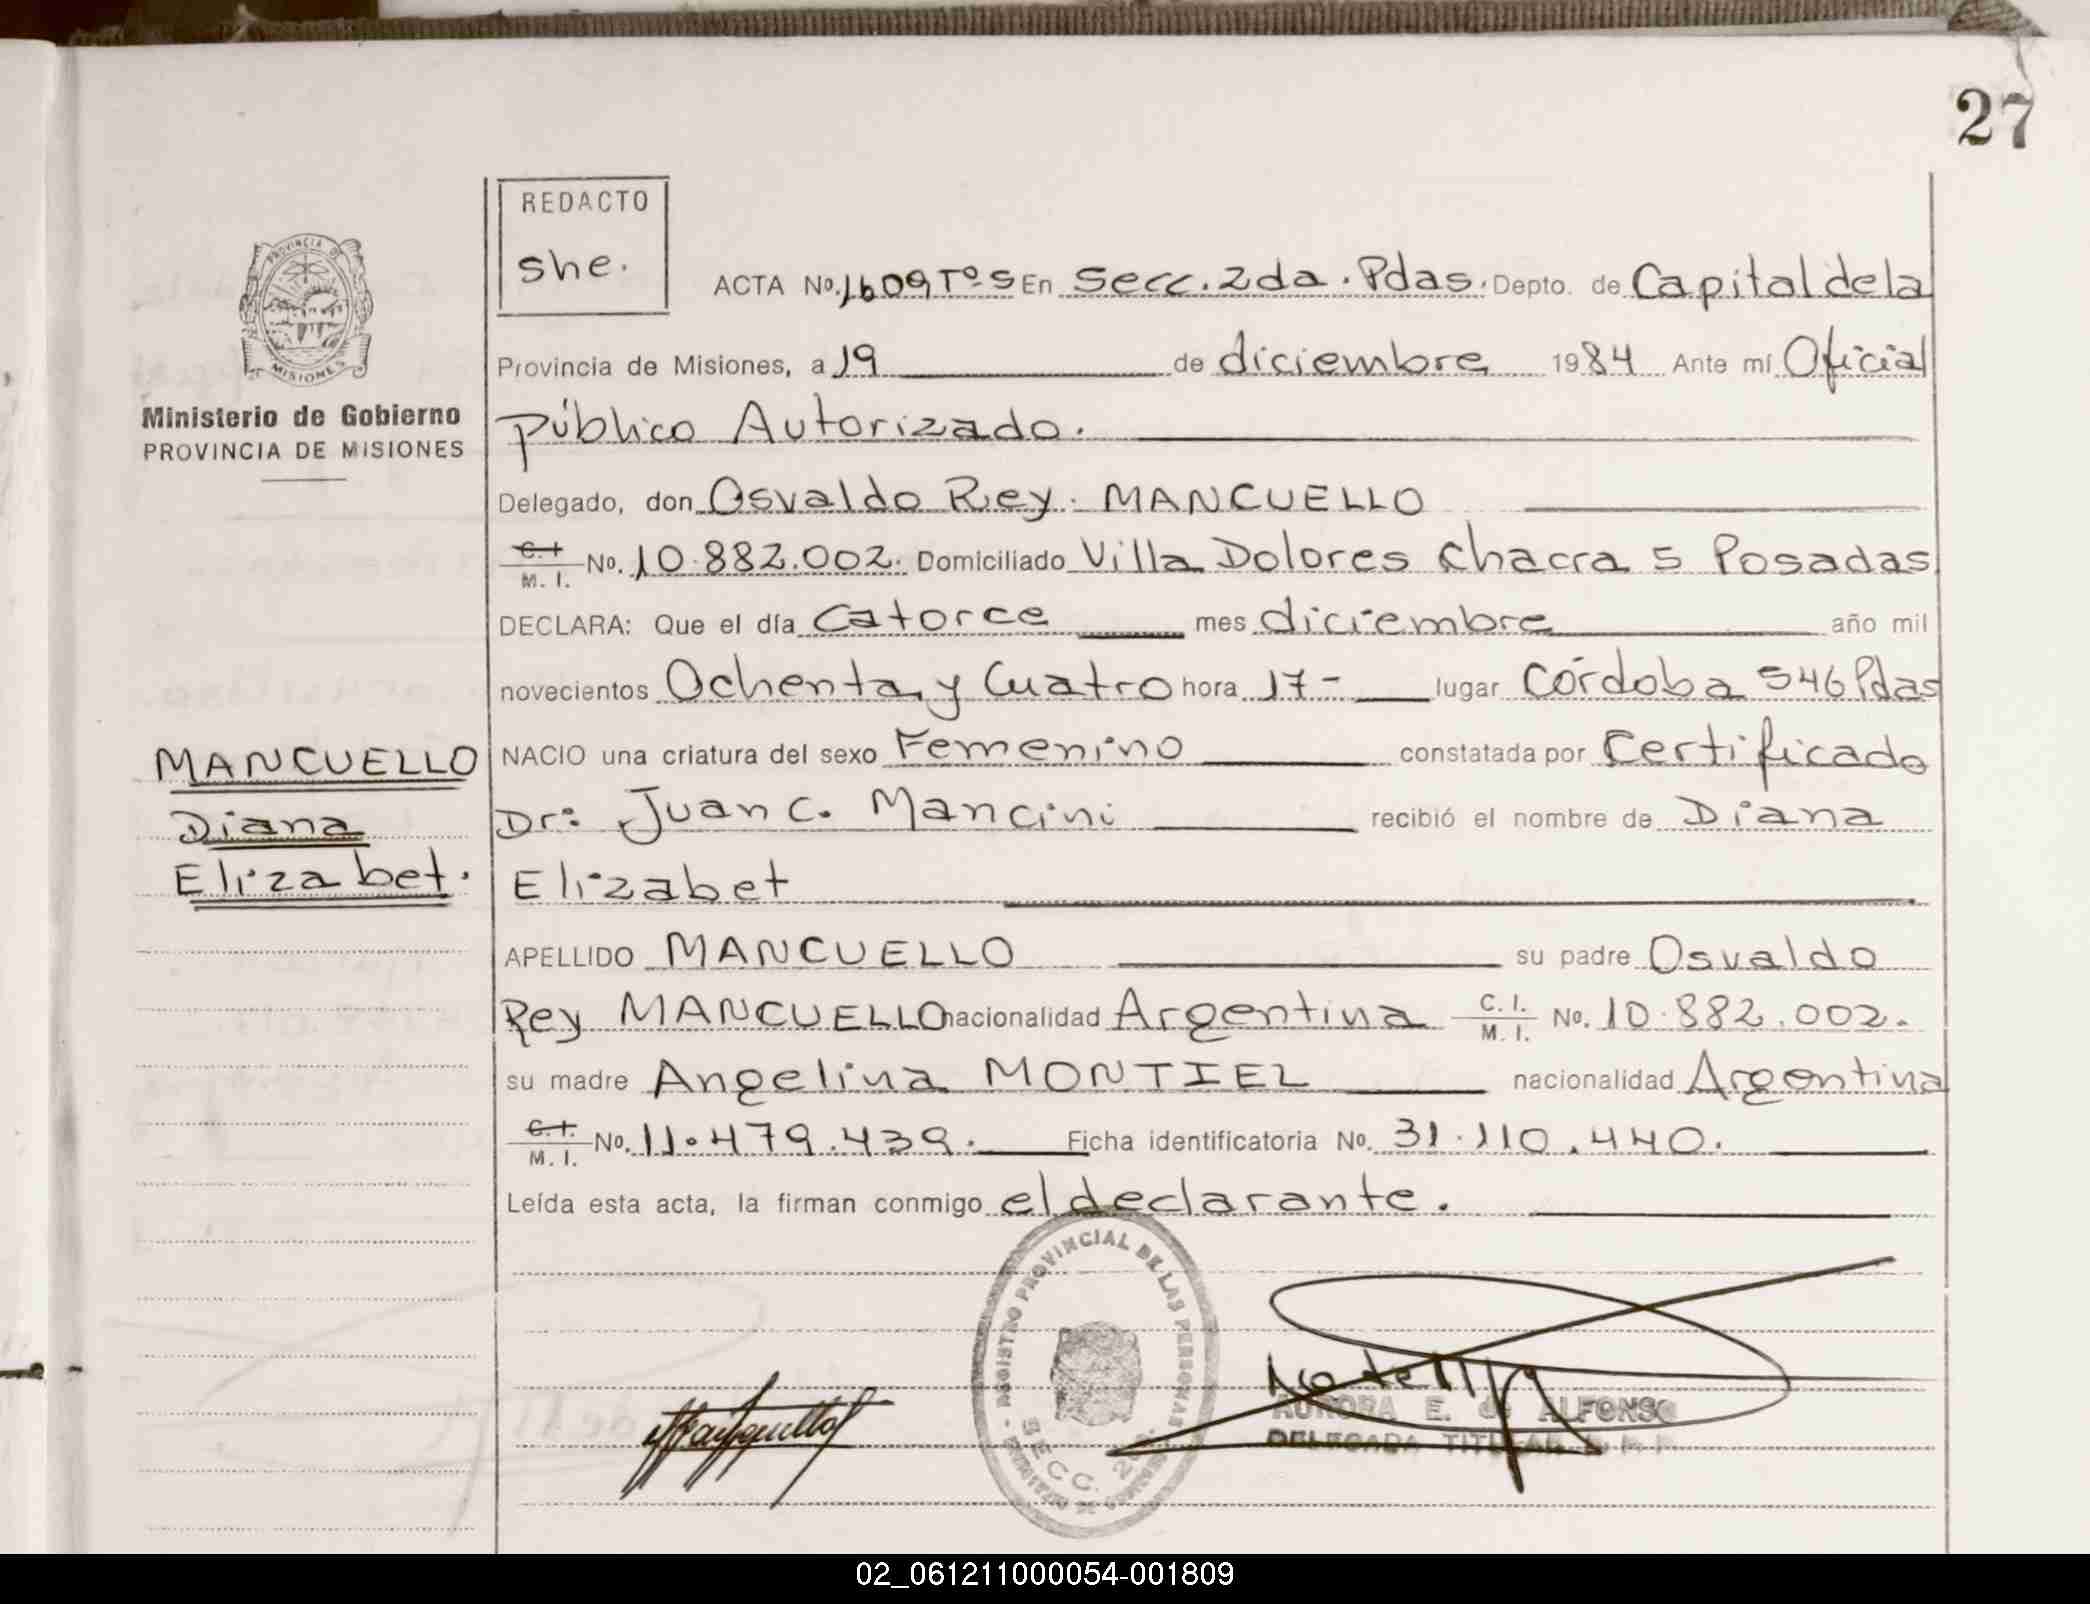 27
REDACTO
she.
ACTA No. 1609 Tº 5 En Secc. 2da. Pdas. Depto. de Capital de la
PROVINCIA DE
MISIONES
Provincia de Misiones, a 19 de diciembre 1984 Ante mí Oficial
Ministerio de Gobierno
PROVINCIA DE MISIONES
Público Autorizado.
Delegado, don Osvaldo Rey. MANCUELLO
C.I. M. I. No. 10.882.002. Domiciliado Villa Dolores Chacra 5 Posadas
DECLARA: Que el día Catorce mes diciembre año mil
novecientos Ochenta y Cuatro hora 17- lugar Córdoba 546 Pdas
MANCUELLO
Diana
Elizabet.
NACIO una criatura del sexo Femenino constatada por Certificado
Dr: Juan C. Mancini recibió el nombre de Diana
Elizabet
APELLIDO MANCUELLO su padre Osvaldo
Rey MANCUELLO nacionalidad Argentina C. I. M. I. No. 10.882.002.
su madre Angelina MONTIEL nacionalidad Argentina
C.I. M. I. No. 11.479.439. Ficha identificatoria No. 31.110.440.
Leída esta acta, la firman conmigo el declarante.
REGISTRO PROVINCIAL DE LAS PERSONAS
SECC. 2da.
AURORA E. de ALFONSO
DELEGADA TITULAR
02_061211000054-001809